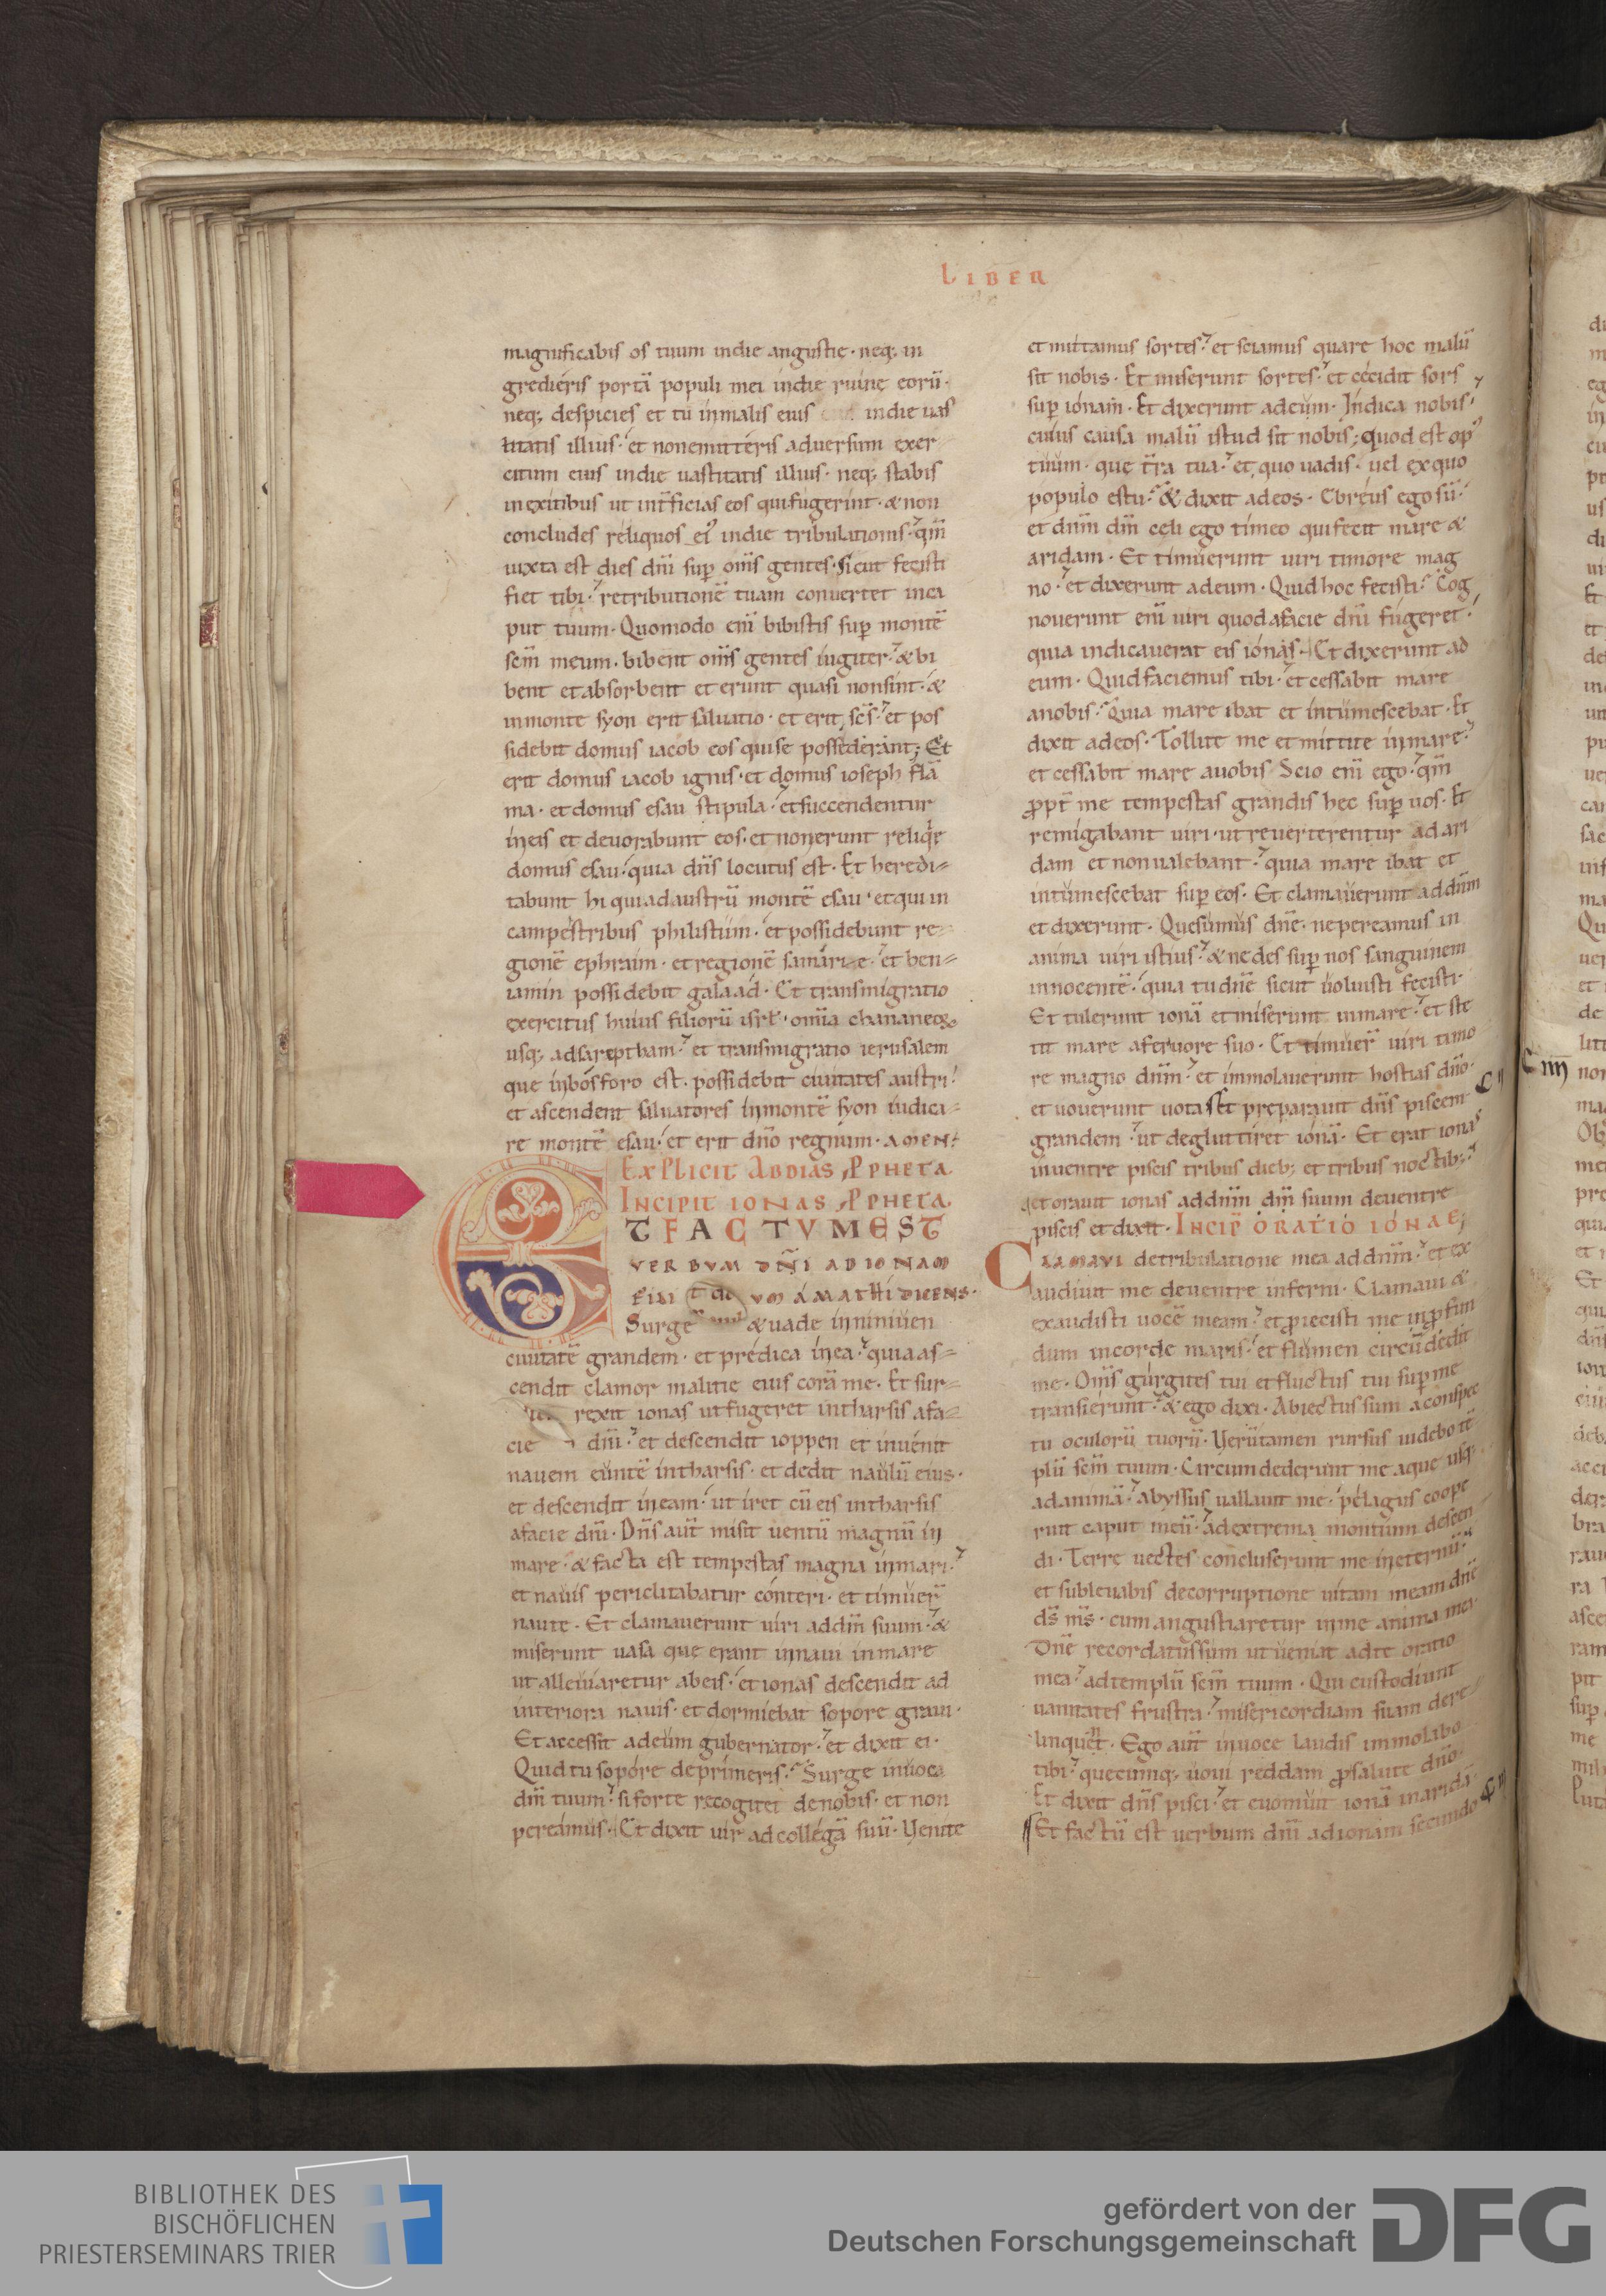 LIBER
magnificabis os tuum indie angustie · neq; in
gredieris portã populi mei indie ruine eorũ ·
neq; despicies et tu inmalis eius indie uas
titatis illius · et nonemitteris adversum exer
citum eius indie uastitatis illius · neq; stabis
inexitibus ut int̃ficias eos quifugerint · & non
concludes reliquos ei' indie tribulationis · qm̃
iuxta est dies dñi sup om̃s gentes · Sicut fecisti
fiet tibi · retributionẽ tuam convertet inca
put tuum · Quomodo eni bibistis sup montẽ
scm̃ meum · bibent om̃s gentes iugiter · & bi
bent et absorbent et erunt quasi nonsint · &
inmonte syon erit saluatio · et erit scs̃ · et pos
sidebit domus iacob eos quise possederant; Et
erit domus iacob ignis · et domus ioseph flã
ma · et domus esau stipula · et succendentur
ineis et devorabunt eos · et nonerunt reliqe
domus esau · quia dñs locutus est · Et heredi=
tabunt hi quiadaustrũ montẽ esau · etqui in
campestribus philistiim · et possidebunt re=
gionẽ ephraim · et regionẽ samarie · et ben=
iamin possidebit galaad · Et transmigratio
exercitus huius filiorũ isrł · omĩa chananeoꝝ
usq; adsareptham · et transmigratio ierusalem
que inbosforo est · possidebit ciuitates austri ·
et ascendent saluatores inmontẽ syon iudica=
re montẽ esau · et erit dño regnum · AMEN ·
EXPLICIT ABDIAS PPHETA
INCIPIT IONAS PPHETA
ET FACTVM EST
VERBVM DÑI AD IONAM
FILI VM AMATHI DICENS ·
Surge & uade inniniuen
ciuitatẽ grandem · et predica inea · quia as=
cendit clamor malitie eius corã me · Et sur=
rexit ionas ut fugeret intharsis afa=
cie dñi · et descendit ioppen et inuenit
nauem euntẽ intharsis · et dedit naulũ eius ·
et descendit ineam · ut iret cũ eis intharsis
afacie dñi · Dñs aut̃ misit uentũ magnũ in
mare · & facta est tempestas magna inmari ·
et nauis periclitabatur conteri · et timuer̃
naute · Et clamauerunt uiri addm̃ suum · &
miserunt uasa que erant innaui inmare
ut alleuiaretur abeis · et ionas descendit ad
interiora nauis · et dormiebat sopore graui ·
Et accessit adeum gubernator · et dixit ei ·
Quid tu sopore deprimeris · Surge inuoca
dm̃ tuum · si forte recogitet denobis · et non
pereamus · Et dixit uir ad collegã suũ · Uenite
et mittamus sortes · et sciamus quare hoc malũ
sit nobis · Et miserunt sortes · et cecidit sors
sup ionam · Et dixerunt adeum · Indica nobis ·
cuius causa malũ istud sit nobis; quod est op'
tuum · que tr̃a tua · et quo uadis · uel exquo
populo estu · & dixit adeos · Ebreus ego sũ ·
et dnm̃ dm̃ celi ego timeo quifecit mare &
aridam · Et timuerunt uiri timore mag
no · et dixerunt adeum · Quid hoc fecisti · Cog
nouerunt eni uiri quodafacie dñi fugeret ·
quia indicauerat eis ionas · Et dixerunt ad
eum · Quid faciemus tibi · et cessabit mare
anobis · Quia mare ibat et intumescebat · Et
dixit adeos · Tollite me et mittite inmare ·
et cessabit mare auobis · Scio eni ego · qm̃
ꝓpt̃ me tempestas grandis hec sup uos · Et
remigabant uiri · ut reuerterentur ad ari
dam et non ualebant · quia mare ibat et
intumescebat sup eos · Et clamauerunt addñm
et dixerunt · Quesumus dñe · ne pereamus in
anima uiri istius · & nedes sup nos sanguinem
innocentẽ · quia tu dñe sicut uoluisti fecisti ·
Et tulerunt ionã et miserunt inmare · et ste
tit mare aferuore suo · Et timuer̃ uiri timo
re magno dnm̃ · et immolauerunt hostias dño ·
et uouerunt uota Et preparauit dñs piscem
grandem · ut degluttiret ionã · Et erat ionas
inuentre piscis tribus dieb; et tribus noctib; ·
et orauit ionas addnm̃ dm̃ suum deuentre
piscis et dixit · INCIP̃ ORATIO IONAE;
CLAMAVI detribulatione mea addnm̃ · et ex
audiuit me deuentre inferni · Clamaui &
exaudisti uocẽ meam · et ꝓiecisti me inꝓfun
dum incorde maris · et flumen circũdedit
me · Om̃s gurgites tui et fluctus tui sup me
transierunt · & ego dixi · Abiectus sum aconspec
tu oculorũ tuorũ · Uerũtamen rursus uidebo tẽ
plũ scm̃ tuum · Circumdederunt me aque usq;
adanimã · abyssus uallauit me · pelagus coope
ruit caput meũ · adextrema montium descen
di · Terre uectes concluserunt me ineternũ ·
et subleuabis decorruptione uitam meam dñe
ds̃ ms̃ · cum angustiaretur inme anima mea
Dñe recordatussum ut ueniat adte oratio
mea · adtemplũ scm̃ tuum · Qui custodiunt
uanitates frustra · misericordiam suam dere=
linquent · Ego aut̃ inuoce laudis immolabo
tibi · quecumq; uoui reddam ꝓsalute dño ·
Et dixit dñs pisci · et euomuit ionã inaridã ·
Et factũ est uerbum dñi adionam secundo
BIBLIOTHEK DES
BISCHÖFLICHEN
PRIESTERSEMINARS TRIER
gefördert von der
Deutschen Forschungsgemeinschaft
DFG